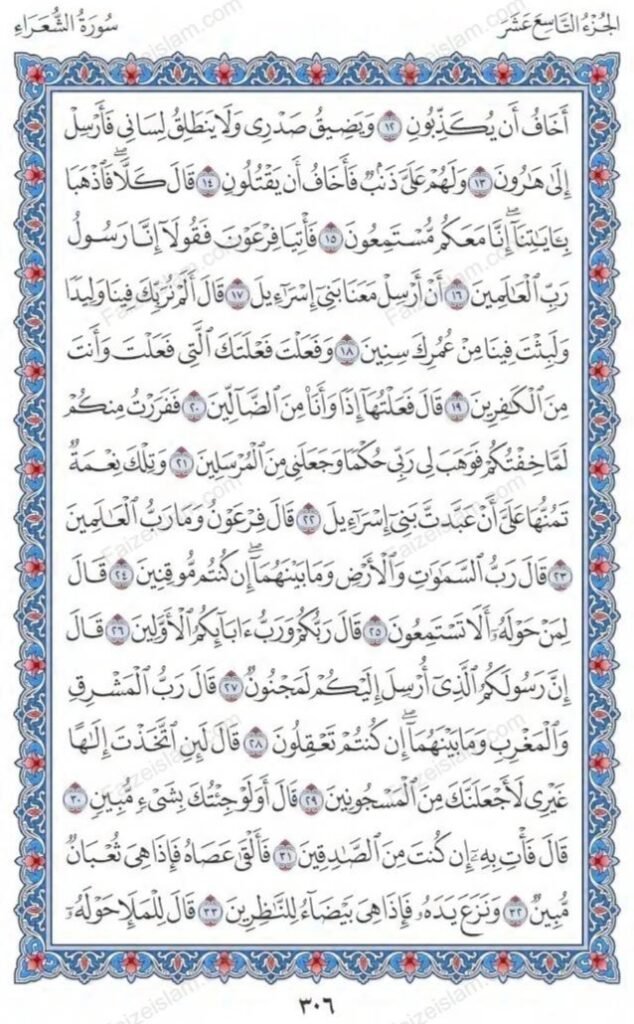 الجُزْءُ التَّاسِعَ عَشَرَ
سُورَةُ الشُّعَرَاءِ
أَخَافُ أَن يُكَذِّبُونِ ١٢ وَيَضِيقُ صَدْرِى وَلَا يَنطَلِقُ لِسَانِى فَأَرْسِلْ
إِلَىٰ هَٰرُونَ ١٣ وَلَهُمْ عَلَىَّ ذَنۢبٌ فَأَخَافُ أَن يَقْتُلُونِ ١٤ قَالَ كَلَّا ۖ فَٱذْهَبَا
بِـَٔايَٰتِنَآ ۖ إِنَّا مَعَكُم مُّسْتَمِعُونَ ١٥ فَأْتِيَا فِرْعَوْنَ فَقُولَآ إِنَّا رَسُولُ
رَبِّ ٱلْعَٰلَمِينَ ١٦ أَنْ أَرْسِلْ مَعَنَا بَنِىٓ إِسْرَٰٓءِيلَ ١٧ قَالَ أَلَمْ نُرَبِّكَ فِينَا وَلِيدًا
وَلَبِثْتَ فِينَا مِنْ عُمُرِكَ سِنِينَ ١٨ وَفَعَلْتَ فَعْلَتَكَ ٱلَّتِى فَعَلْتَ وَأَنتَ
مِنَ ٱلْكَٰفِرِينَ ١٩ قَالَ فَعَلْتُهَآ إِذًا وَأَنَا۠ مِنَ ٱلضَّآلِّينَ ٢٠ فَفَرَرْتُ مِنكُمْ
لَمَّا خِفْتُكُمْ فَوَهَبَ لِى رَبِّى حُكْمًا وَجَعَلَنِى مِنَ ٱلْمُرْسَلِينَ ٢١ وَتِلْكَ نِعْمَةٌ
تَمُنُّهَا عَلَىَّ أَنْ عَبَّدتَّ بَنِىٓ إِسْرَٰٓءِيلَ ٢٢ قَالَ فِرْعَوْنُ وَمَا رَبُّ ٱلْعَٰلَمِينَ
٢٣ قَالَ رَبُّ ٱلسَّمَٰوَٰتِ وَٱلْأَرْضِ وَمَا بَيْنَهُمَآ ۖ إِن كُنتُم مُّوقِنِينَ ٢٤ قَالَ
لِمَنْ حَوْلَهُۥٓ أَلَا تَسْتَمِعُونَ ٢٥ قَالَ رَبُّكُمْ وَرَبُّ ءَابَآئِكُمُ ٱلْأَوَّلِينَ ٢٦ قَالَ
إِنَّ رَسُولَكُمُ ٱلَّذِىٓ أُرْسِلَ إِلَيْكُمْ لَمَجْنُونٌ ٢٧ قَالَ رَبُّ ٱلْمَشْرِقِ
وَٱلْمَغْرِبِ وَمَا بَيْنَهُمَآ ۖ إِن كُنتُمْ تَعْقِلُونَ ٢٨ قَالَ لَئِنِ ٱتَّخَذْتَ إِلَٰهًا
غَيْرِى لَأَجْعَلَنَّكَ مِنَ ٱلْمَسْجُونِينَ ٢٩ قَالَ أَوَلَوْ جِئْتُكَ بِشَىْءٍ مُّبِينٍ ٣٠
قَالَ فَأْتِ بِهِۦٓ إِن كُنتَ مِنَ ٱلصَّٰدِقِينَ ٣١ فَأَلْقَىٰ عَصَاهُ فَإِذَا هِىَ ثُعْبَانٌ
مُّبِينٌ ٣٢ وَنَزَعَ يَدَهُۥ فَإِذَا هِىَ بَيْضَآءُ لِلنَّٰظِرِينَ ٣٣ قَالَ لِلْمَلَإِ حَوْلَهُۥٓ
٣٠٦
Faizeislam.com